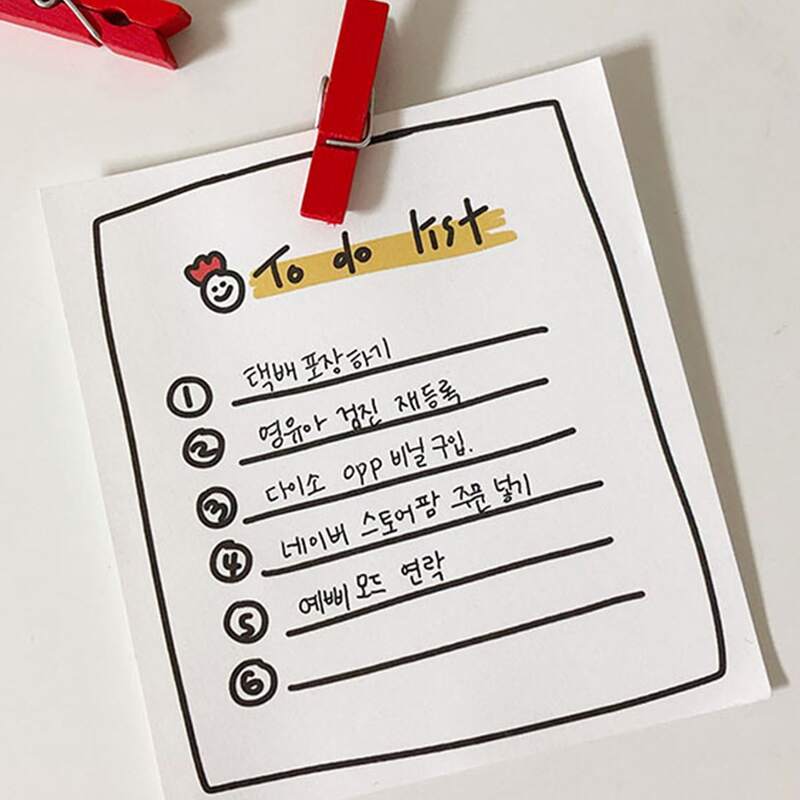 To do list
1 택배 포장하기
2 영유아 검진 재등록
3 다이소 opp 비닐 구입.
4 네이버 스토어팜 주문 넣기
5 예삐모드 연락
6